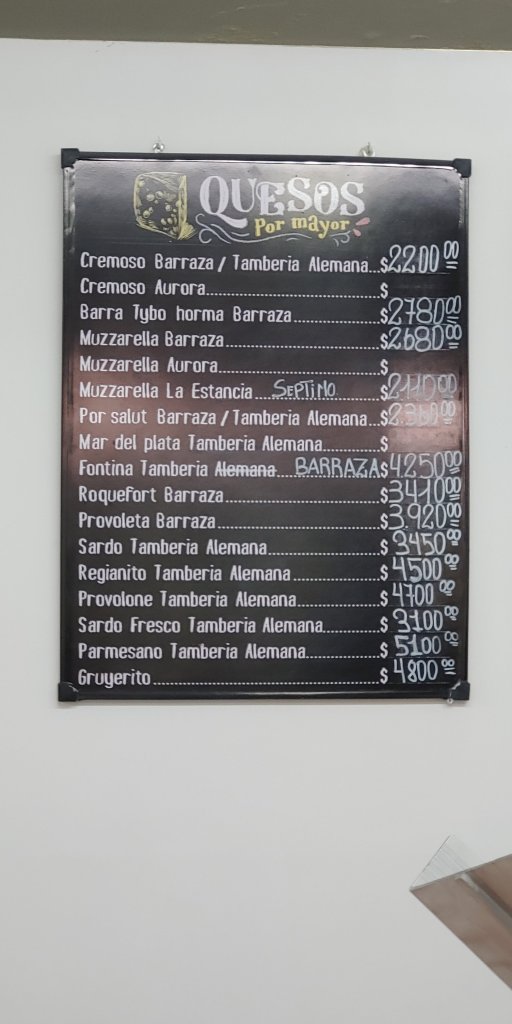 QUESOS
Por mayor
Cremoso Barraza / Tamberia Alemana...$2200 00
Cremoso Aurora...$
Barra Tybo horma Barraza...$2780 00
Muzzarella Barraza...$2680 00
Muzzarella Aurora...$
Muzzarella La Estancia...SEPTIMO $2140 00
Por salut Barraza / Tamberia Alemana...$2.360 00
Mar del plata Tamberia Alemana...$
Fontina Tamberia Alemana BARRAZA $4.250 00
Roquefort Barraza...$3410 00
Provoleta Barraza...$3.920 00
Sardo Tamberia Alemana...$3450 00
Regianito Tamberia Alemana...$4500 00
Provolone Tamberia Alemana...$4700 00
Sardo Fresco Tamberia Alemana...$3100 00
Parmesano Tamberia Alemana...$5100 00
Gruyerito...$4800 00